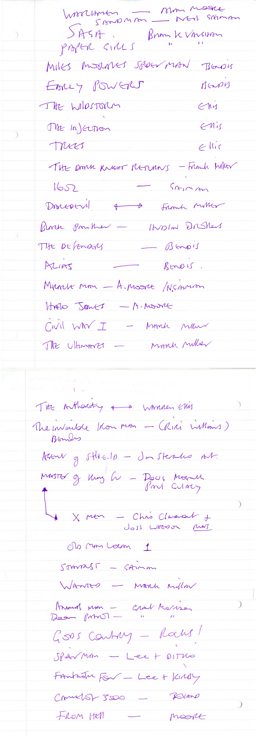 WATCHMEN — ALAN MOORE
SANDMAN — NEIL GAIMAN
SAGA. BRIAN K VAUGHAN
PAPER GIRLS " "
MILES MORALES SPIDERMAN BENDIS
EARLY POWERS BENDIS
THE WILDSTORM Ellis
THE INJECTION Ellis
TREES Ellis
THE DARK KNIGHT RETURNS - Frank Miller
1602 — GAIMAN
DAREDEVIL ↔ Frank Miller
Black Panther —
THE DEFENDERS — BENDIS
ALIAS — BENDIS.
Miracle Man — A.MOORE / N.GAIMAN
HALO JONES — A.MOORE
CIVIL WAR I — MARK Millar
THE Ultimates — MARK Millar
THE Authority ↔ WARREN Ellis
The invincible Iron man — (Riri Williams)
Bendis
AGENT of SHIELD - Jim Steranko art
MASTER of Kung Fu — Doug Moench
Paul Gulacy
X MEN — Chris Claremont +
JOSS WHEDON
OLD MAN LOGAN
STARDUST — GAIMAN
WANTED — MARK Millar
Animal man — Grant Morrison
Doom PATROL — " "
GODS Country — Rocks!
SPIDERMAN — Lee + DITKO
Fantastic Four — Lee + Kirby
Camelot 3000 — BOLLAND
FROM HELL — MOORE